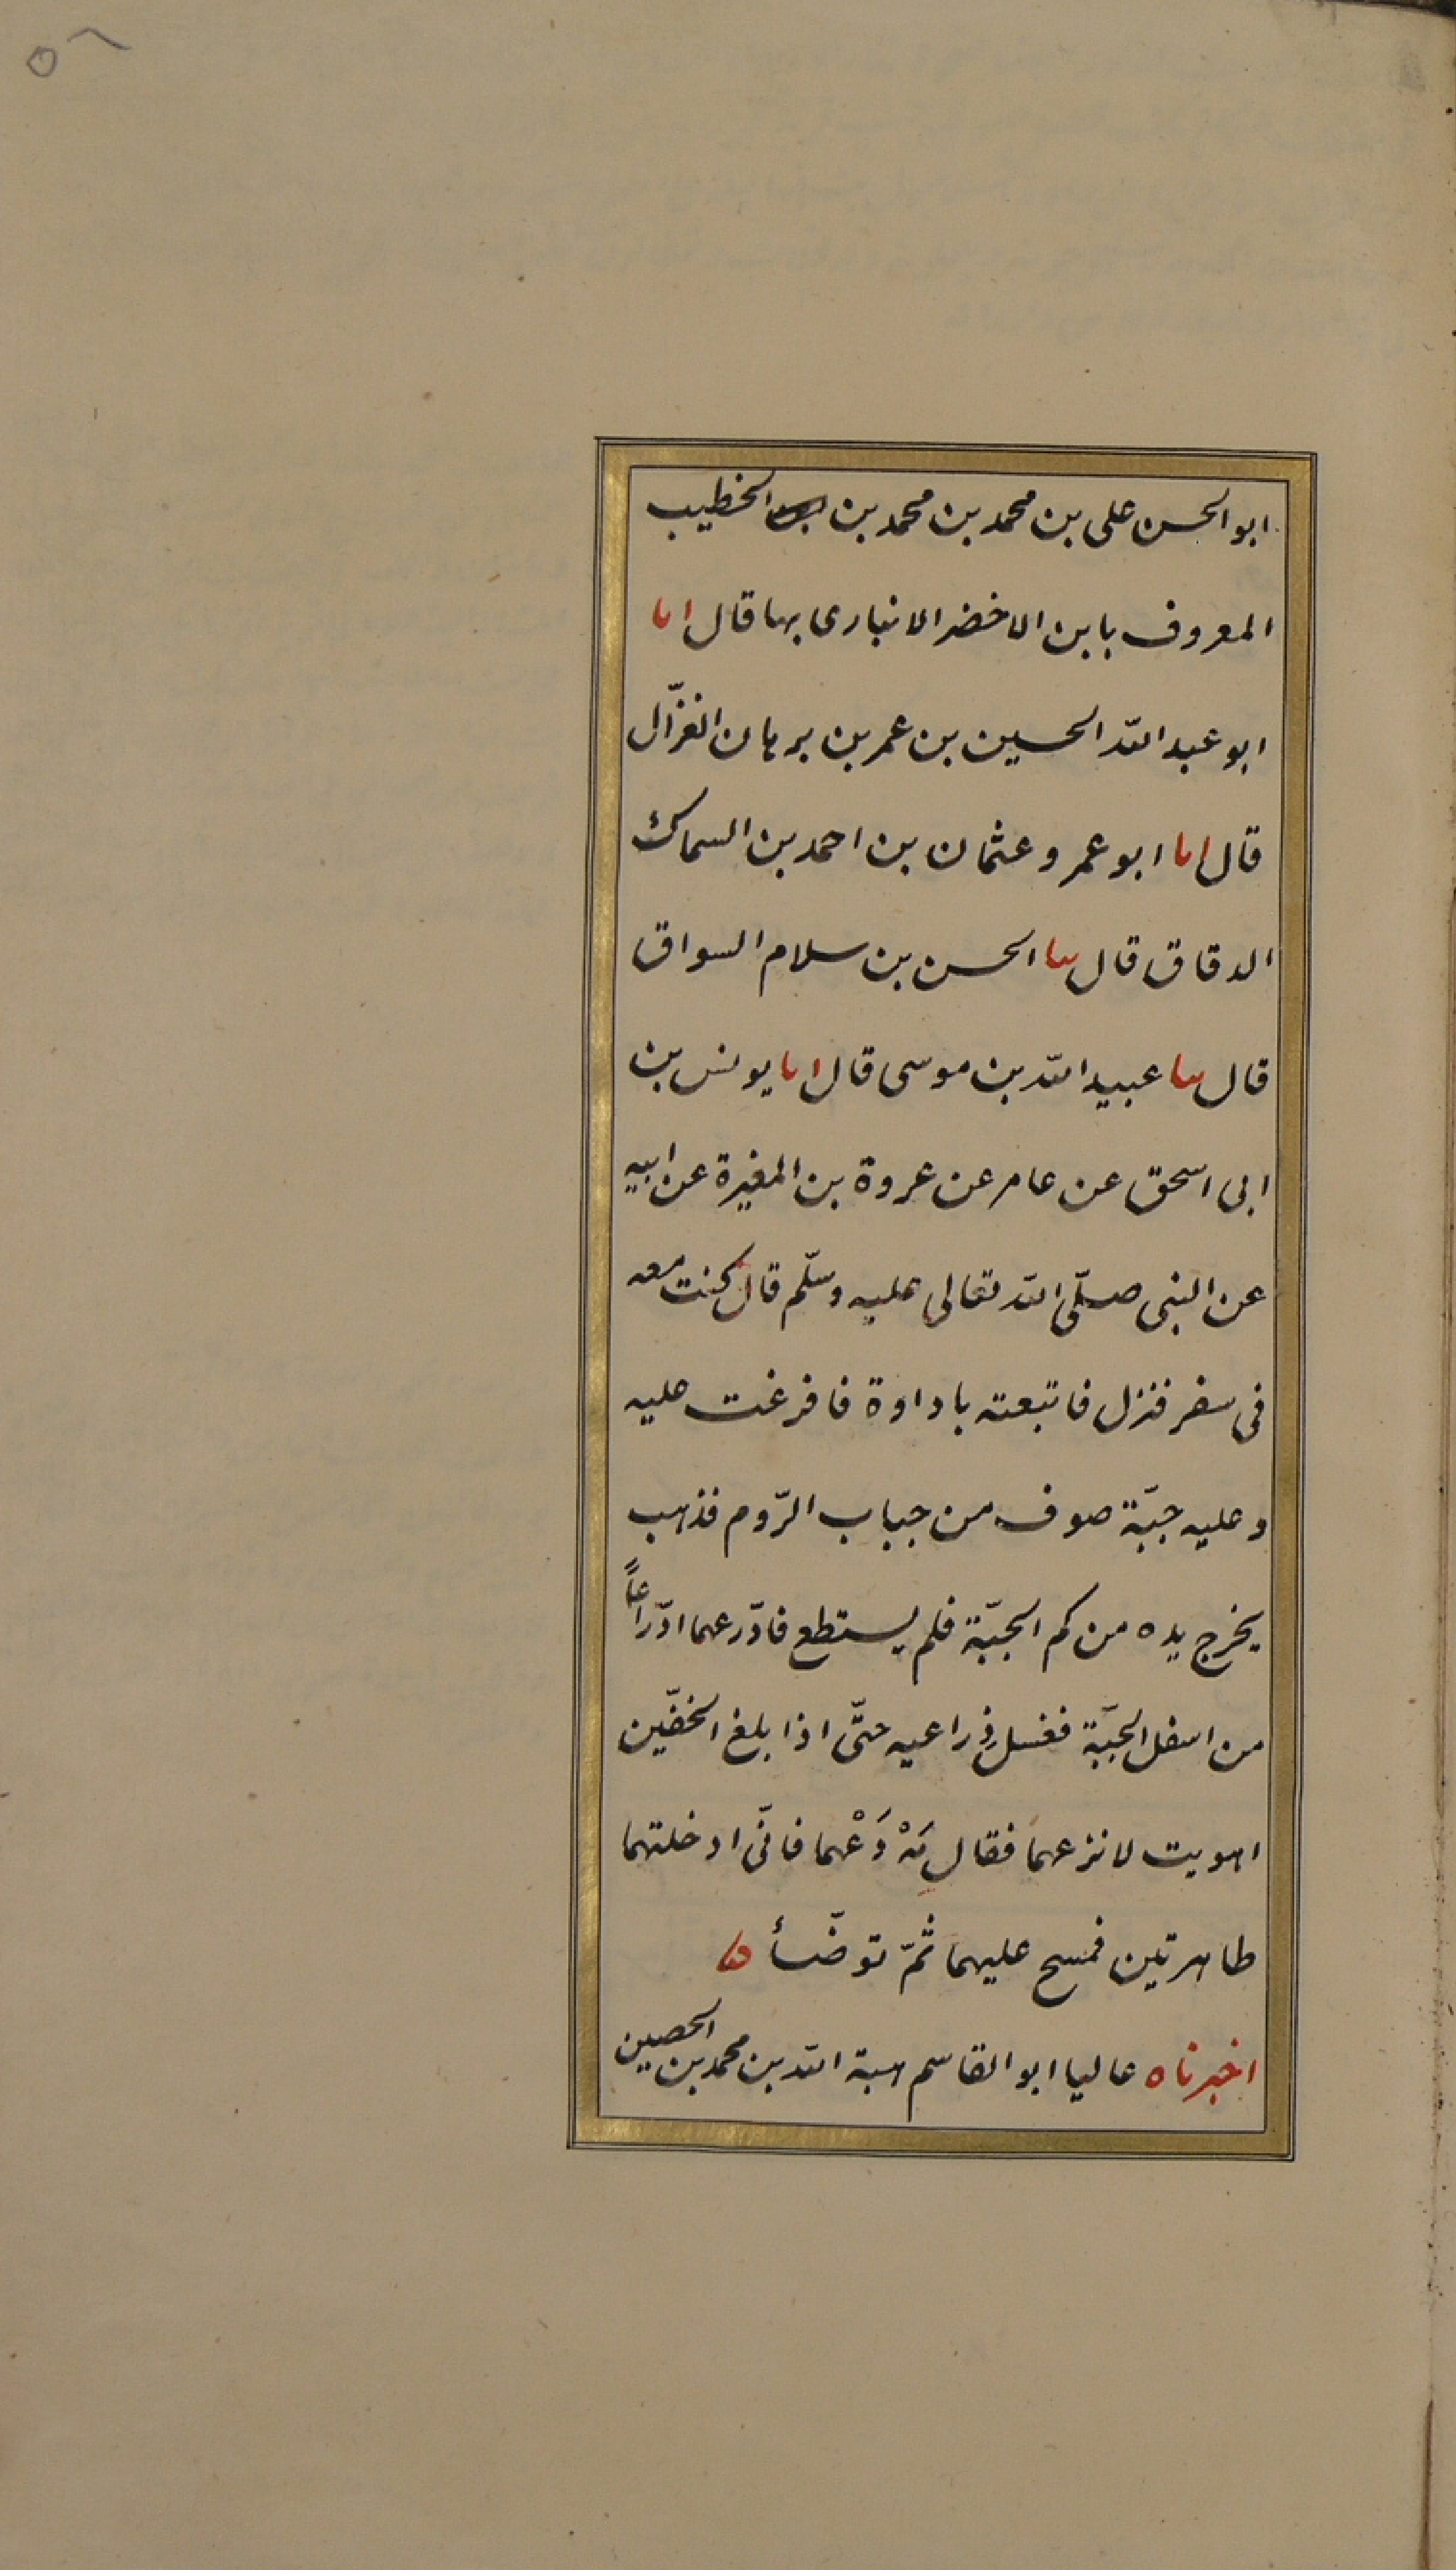 ابو الحسن على بن محمد بن محمد بن الخطيب
المعروف بابن الاخضر الانبارى بها قال انا
ابو عبد الله الحسين بن عمر بن برهان الغزّال
قال انا ابو عمرو عثمان بن احمد بن السماك
الدقاق قال ثنا الحسن بن سلام السواق
قال ثنا عبيد الله بن موسى قال انا يونس بن
ابى اسحق عن عامر عن عروة بن المغيرة عن ابيه
عن النبى صلّى الله تعالى عليه وسلّم قال كنت معه
فى سفر فنزل فاتبعته باداوة فافرغت عليه
وعليه جبّة صوف من جباب الرّوم فذهب
يخرج يده من كم الجبّة فلم يستطع فادّرعهما ادّراعاً
من اسفل الجبّة فغسل ذراعيه حتّى اذا بلغ الخفّين
اهويت لانزعهما فقال مَهْ دَعْهما فانّى ادخلتهما
طاهرتين فمسح عليهما ثمّ توضّأ
اخبرناه عاليا ابو القاسم هبة الله بن محمد بن الحصين